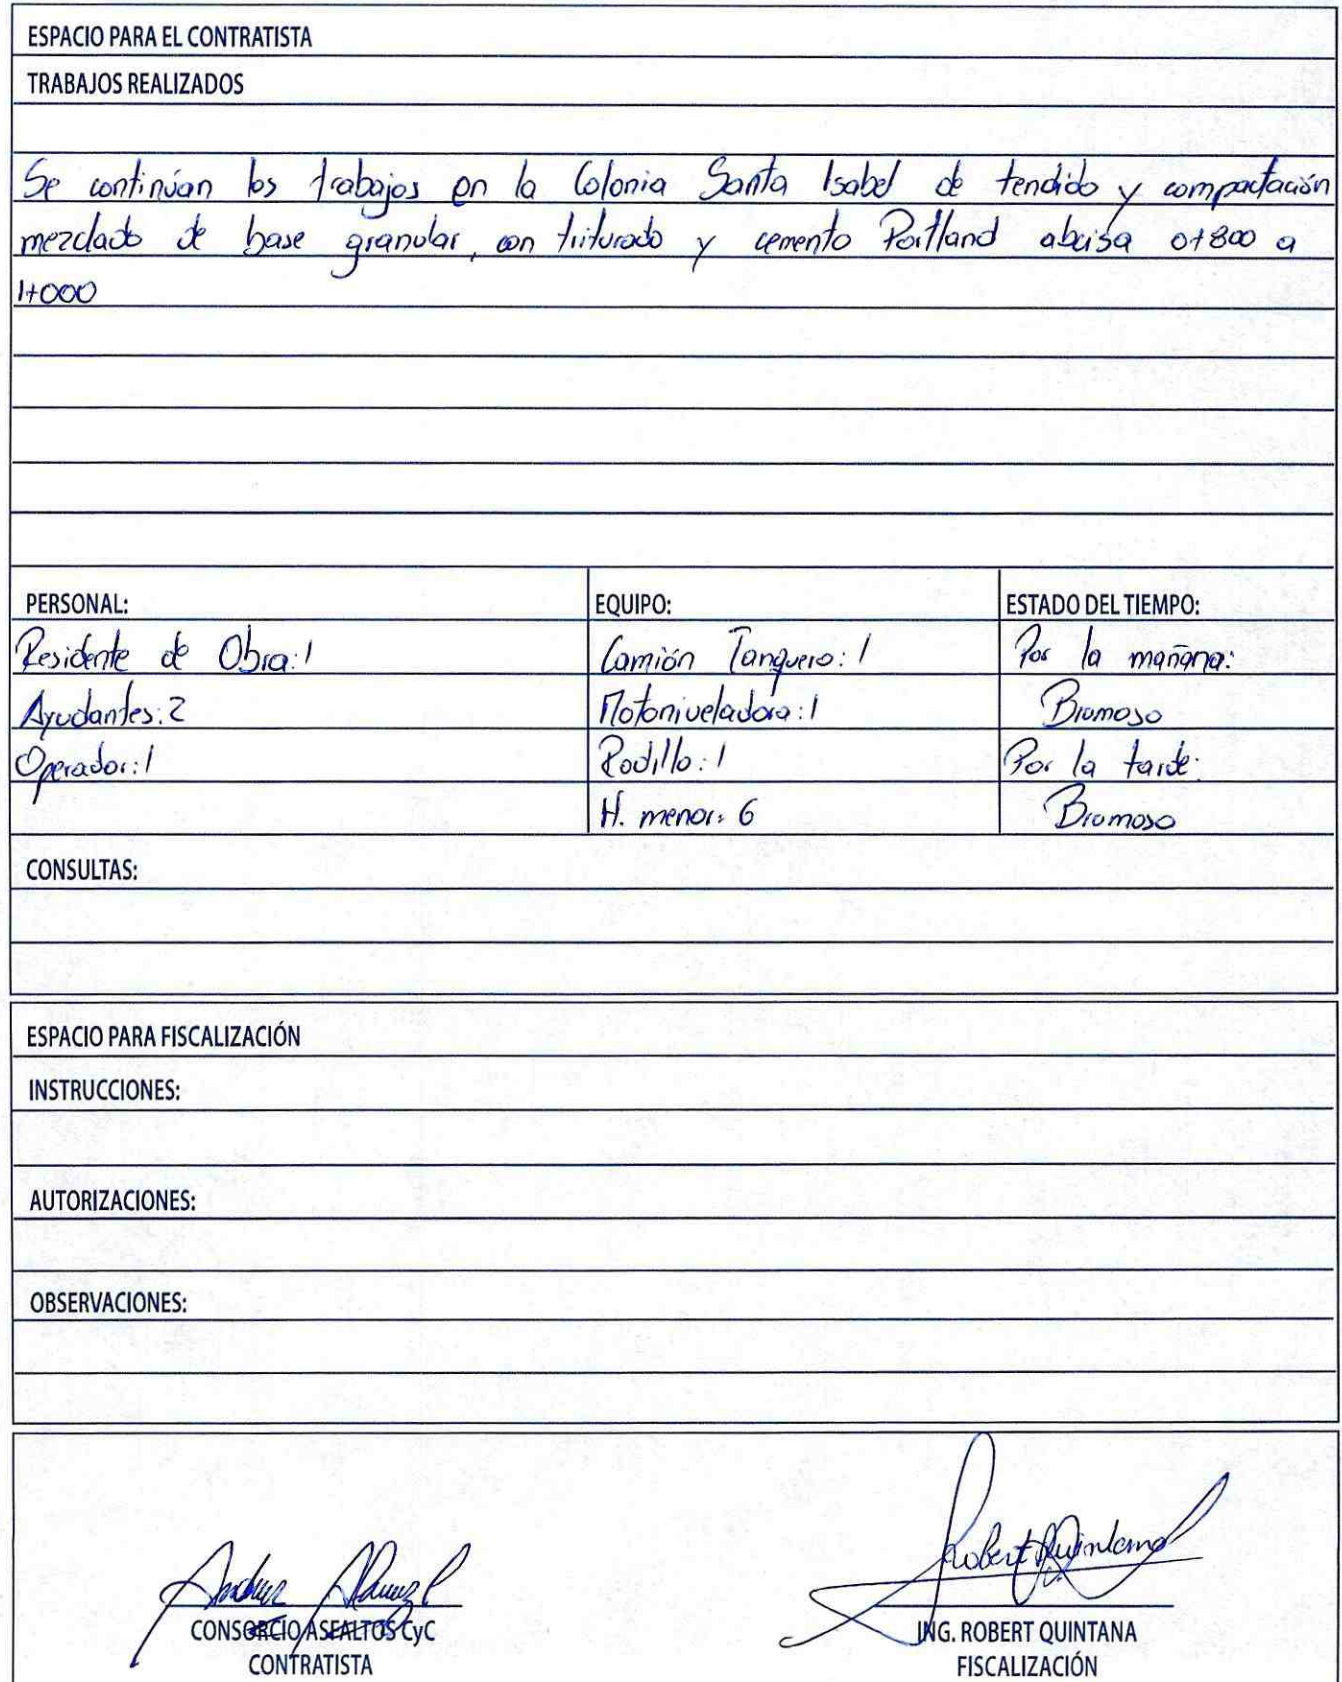 ESPACIO PARA EL CONTRATISTA
TRABAJOS REALIZADOS
Se continúan los trabajos en la Colonia Santa Isabel de tendido y compactación
mezclado de base granular, con triturado y cemento Portland abcisa 0+800 a
1+000
PERSONAL: EQUIPO: ESTADO DEL TIEMPO:
Residente de Obra: 1 Camión Tanquero: 1 Por la mañana:
Ayudantes: 2 Motoniveladora: 1 Bromoso
Operador: 1 Rodillo: 1 Por la tarde:
H. menor: 6 Bromoso
CONSULTAS:
ESPACIO PARA FISCALIZACIÓN
INSTRUCCIONES:
AUTORIZACIONES:
OBSERVACIONES:
Robert Quintana
CONSORCIO ASFALTOS CyC ING. ROBERT QUINTANA
CONTRATISTA FISCALIZACIÓN